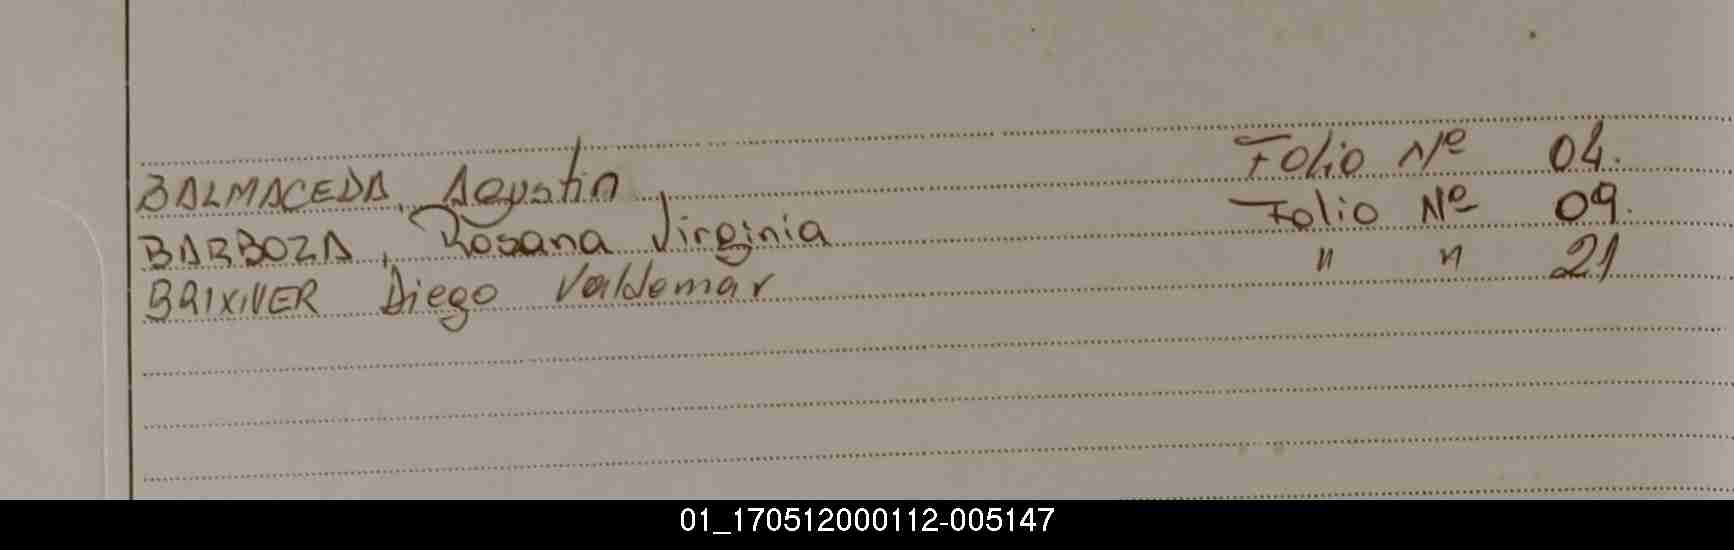 BALMACEDA, Agustin Folio Nº 04.
BARBOZA, Rosana Virginia Folio Nº 09.
Diego Valdemar " " 21
01_170512000112-005147